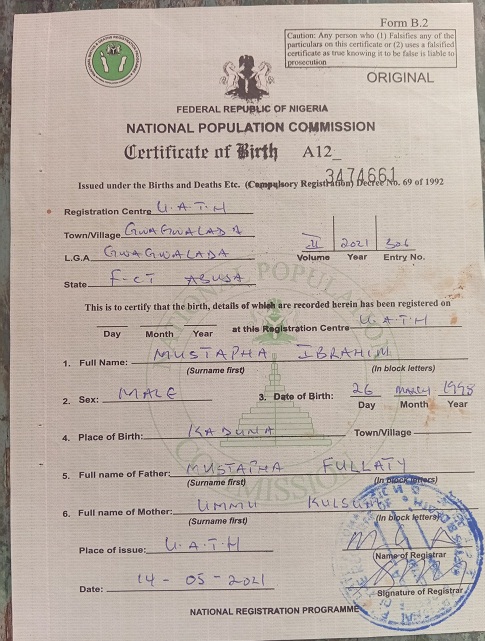 Form B.2
Caution: Any person who (1) Falsifies any of the
particulars on this certificate or (2) uses a falsified
certificate as true knowing it to be false is liable to
prosecution
ORIGINAL
FEDERAL REPUBLIC OF NIGERIA
NATIONAL POPULATION COMMISSION
Certificate of Birth A12_
3474661
Issued under the Births and Deaths Etc. (Compulsory Registration) Decree No. 69 of 1992
Registration Centre U.A.T.H
Town/Village GWAGWALADA
L.G.A GWAGWALADA
VI 2021 306
Volume Year Entry No.
State F-CT ABUJA
This is to certify that the birth, details of which are recorded herein has been registered on
at this Registration Centre U.A.T.H
Day Month Year
1. Full Name: MUSTAPHA IBRAHIM
(Surname first) (In block letters)
2. Sex: MALE 3. Date of Birth: 26 MARCH 1998
Day Month Year
4. Place of Birth: KADUNA Town/Village
5. Full name of Father: MUSTAPHA FULLATY
(Surname first) (In block letters)
6. Full name of Mother: UMMU KULSUM
(Surname first) (In block letters)
Place of issue: U.A.T.H
(Name of Registrar
Date: 14-05-2021
Signature of Registrar
NATIONAL REGISTRATION PROGRAMME